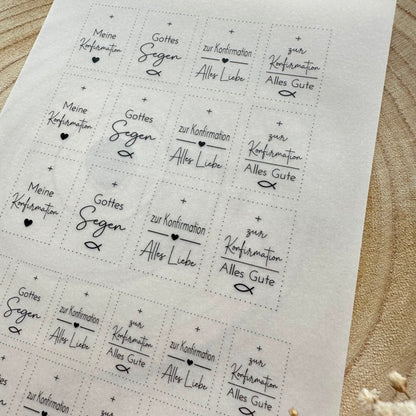 +
Meine
Konfirmation
+
Gottes
Segen
+
zur Konfirmation
Alles Liebe
+
zur
Konfirmation
Alles Gute
+
Meine
Konfirmation
+
Gottes
Segen
+
zur Konfirmation
Alles Liebe
+
zur
Konfirmation
Alles Gute
+
Meine
Konfirmation
+
Gottes
Segen
+
zur Konfirmation
Alles Liebe
+
zur
Konfirmation
Alles Gute
Gottes
Segen
+
zur Konfirmation
Alles Liebe
+
zur
Konfirmation
Alles Gute
+
zur Konfirmation
Alles Liebe
+
zur
Konfirmation
Alles Gute
+
zur Konfirmation
Alles Liebe
+
zur
Konfirmation
+
zur Konfirmation
+